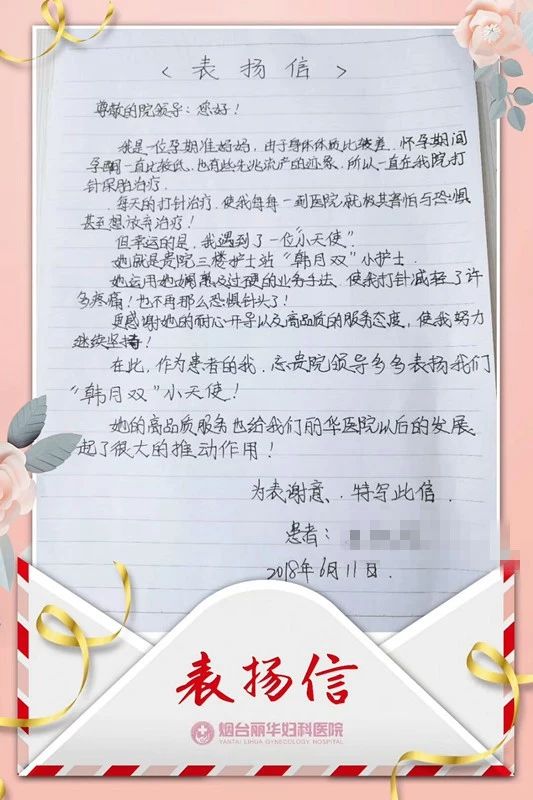 〈表扬信〉
尊敬的院领导：您好！
我是一位孕期准妈妈，由于身体体质比较差，怀孕期间
孕酮一直比较低，也有些先兆流产的迹象，所以一直在我院打
针保胎治疗．
每天的打针治疗．使我每每一到医院就极其害怕与恐惧
甚至想放弃治疗！
但幸运的是，我遇到了一位“小天使”．
她就是贵院三楼护士站“韩月双”小护士．
她运用她娴熟及过硬的业务手法．使我打针减轻了许
多疼痛！也不再那么恐惧针头了！
更感谢她的耐心开导以及高品质的服务态度，使我努力
继续坚持！
在此，作为患者的我．忘贵院领导多多表扬我们
“韩月双”小天使！
她的高品质服务也给我们丽华医院以后的发展
起了很大的推动作用！
为表谢意、特写此信．
患者：
2018年6月11日．
表扬信
烟台丽华妇科医院
YANTAI LIHUA GYNECOLOGY HOSPITAL